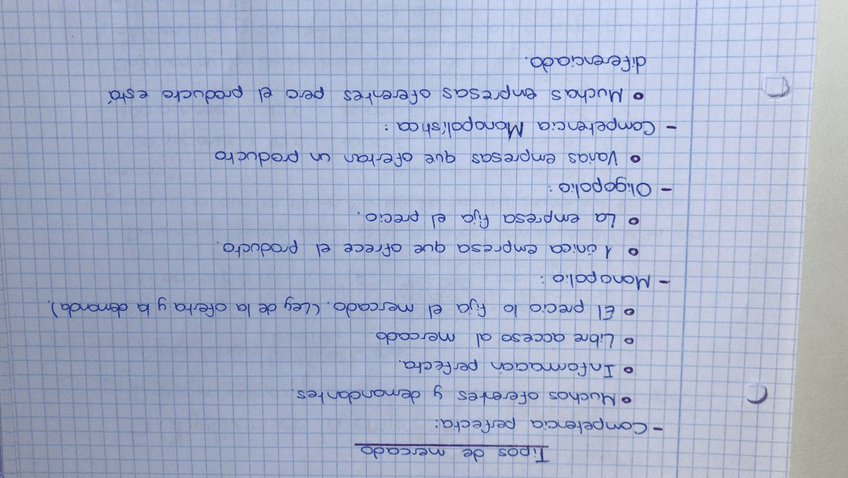 Tipos de mercado
- Competencia perfecta:
• Muchos oferentes y demandantes.
• Informacion perfecta.
• Libre acceso al mercado
• El precio lo fija el mercado. (Ley de la oferta y la demanda.)
- Monopolio:
• 1 única empresa que ofrece el producto.
• La empresa fija el precio.
- Oligopolio:
• Varias empresas que ofertan un producto
- Competencia Monopolística:
• Muchas empresas oferentes pero el producto está
diferenciado.